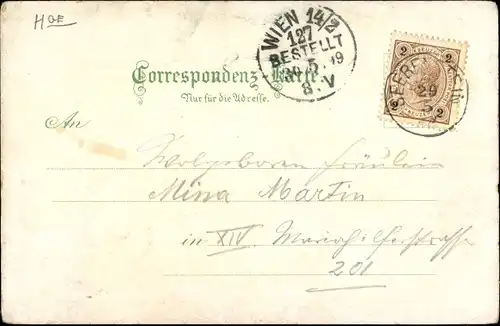 HOE
WIEN 14/2
127
BESTELLT
30.5.99
8.V
2 2
29
5
2 2
Correspondenz-Karte
Nur für die Adresse.
An
Wolgeboren Fräulein
Mina Martin
in XIV. Mariahilferstrasse
201